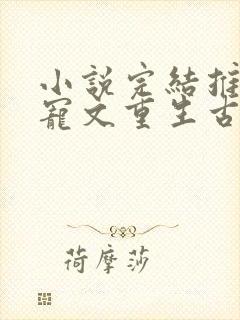 小說完結推
寵文重生古
荷摩莎